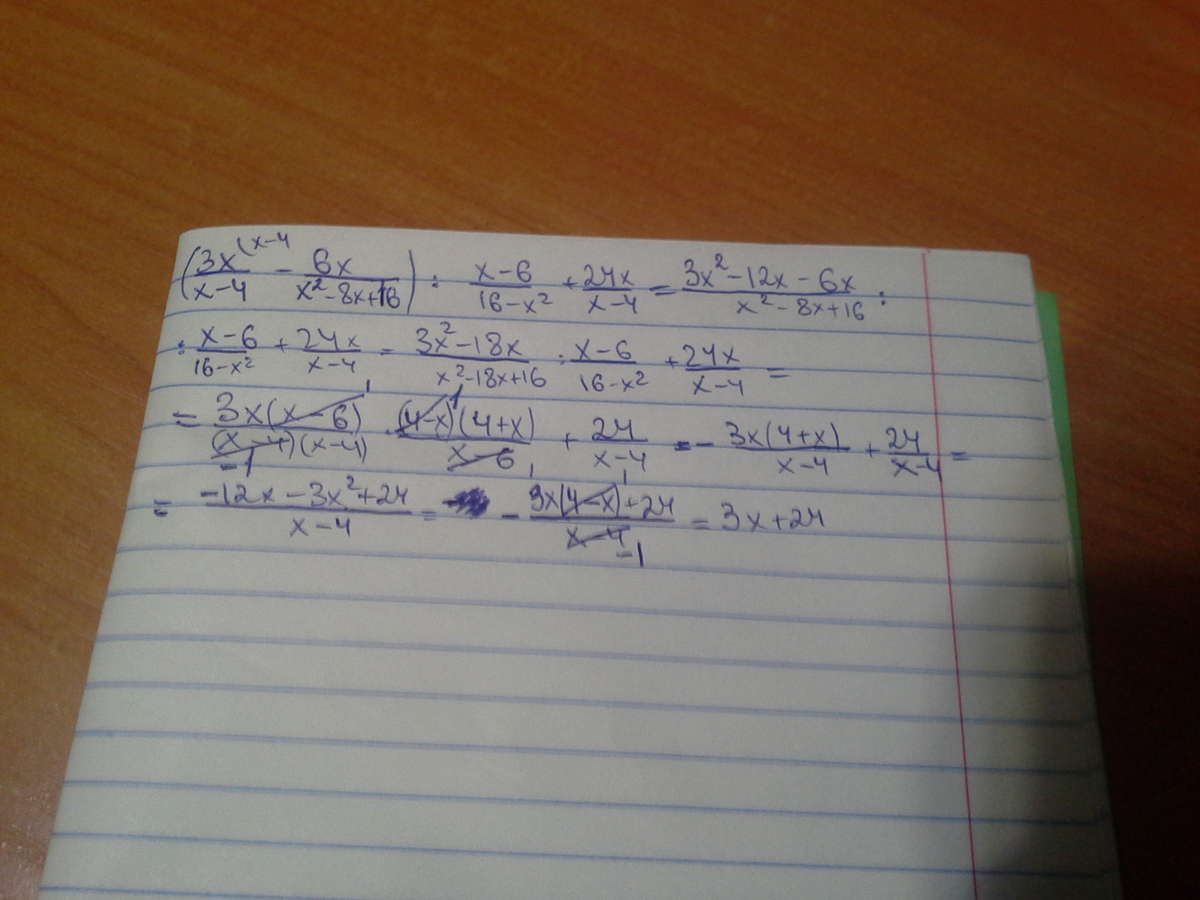 (3x^(x-4 / x-4 - 6x / x²-8x+16) : x-6 / 16-x² + 24x / x-4 = 3x²-12x-6x / x²-8x+16 :
: x-6 / 16-x² + 24x / x-4 = 3x²-18x / x²-18x+16 : x-6 / 16-x² + 24x / x-4 =
= 3x(x-6) 1 / (x-4)(x-4) -1 · (4-x) 1 (4+x) / x-6 1 + 24 / x-4 = - 3x(4+x) / x-4 + 24 / x-4 =
= -12x-3x²+24 / x-4 = - 3x(4-x) 1 +24 / x-4 -1 = 3x+24